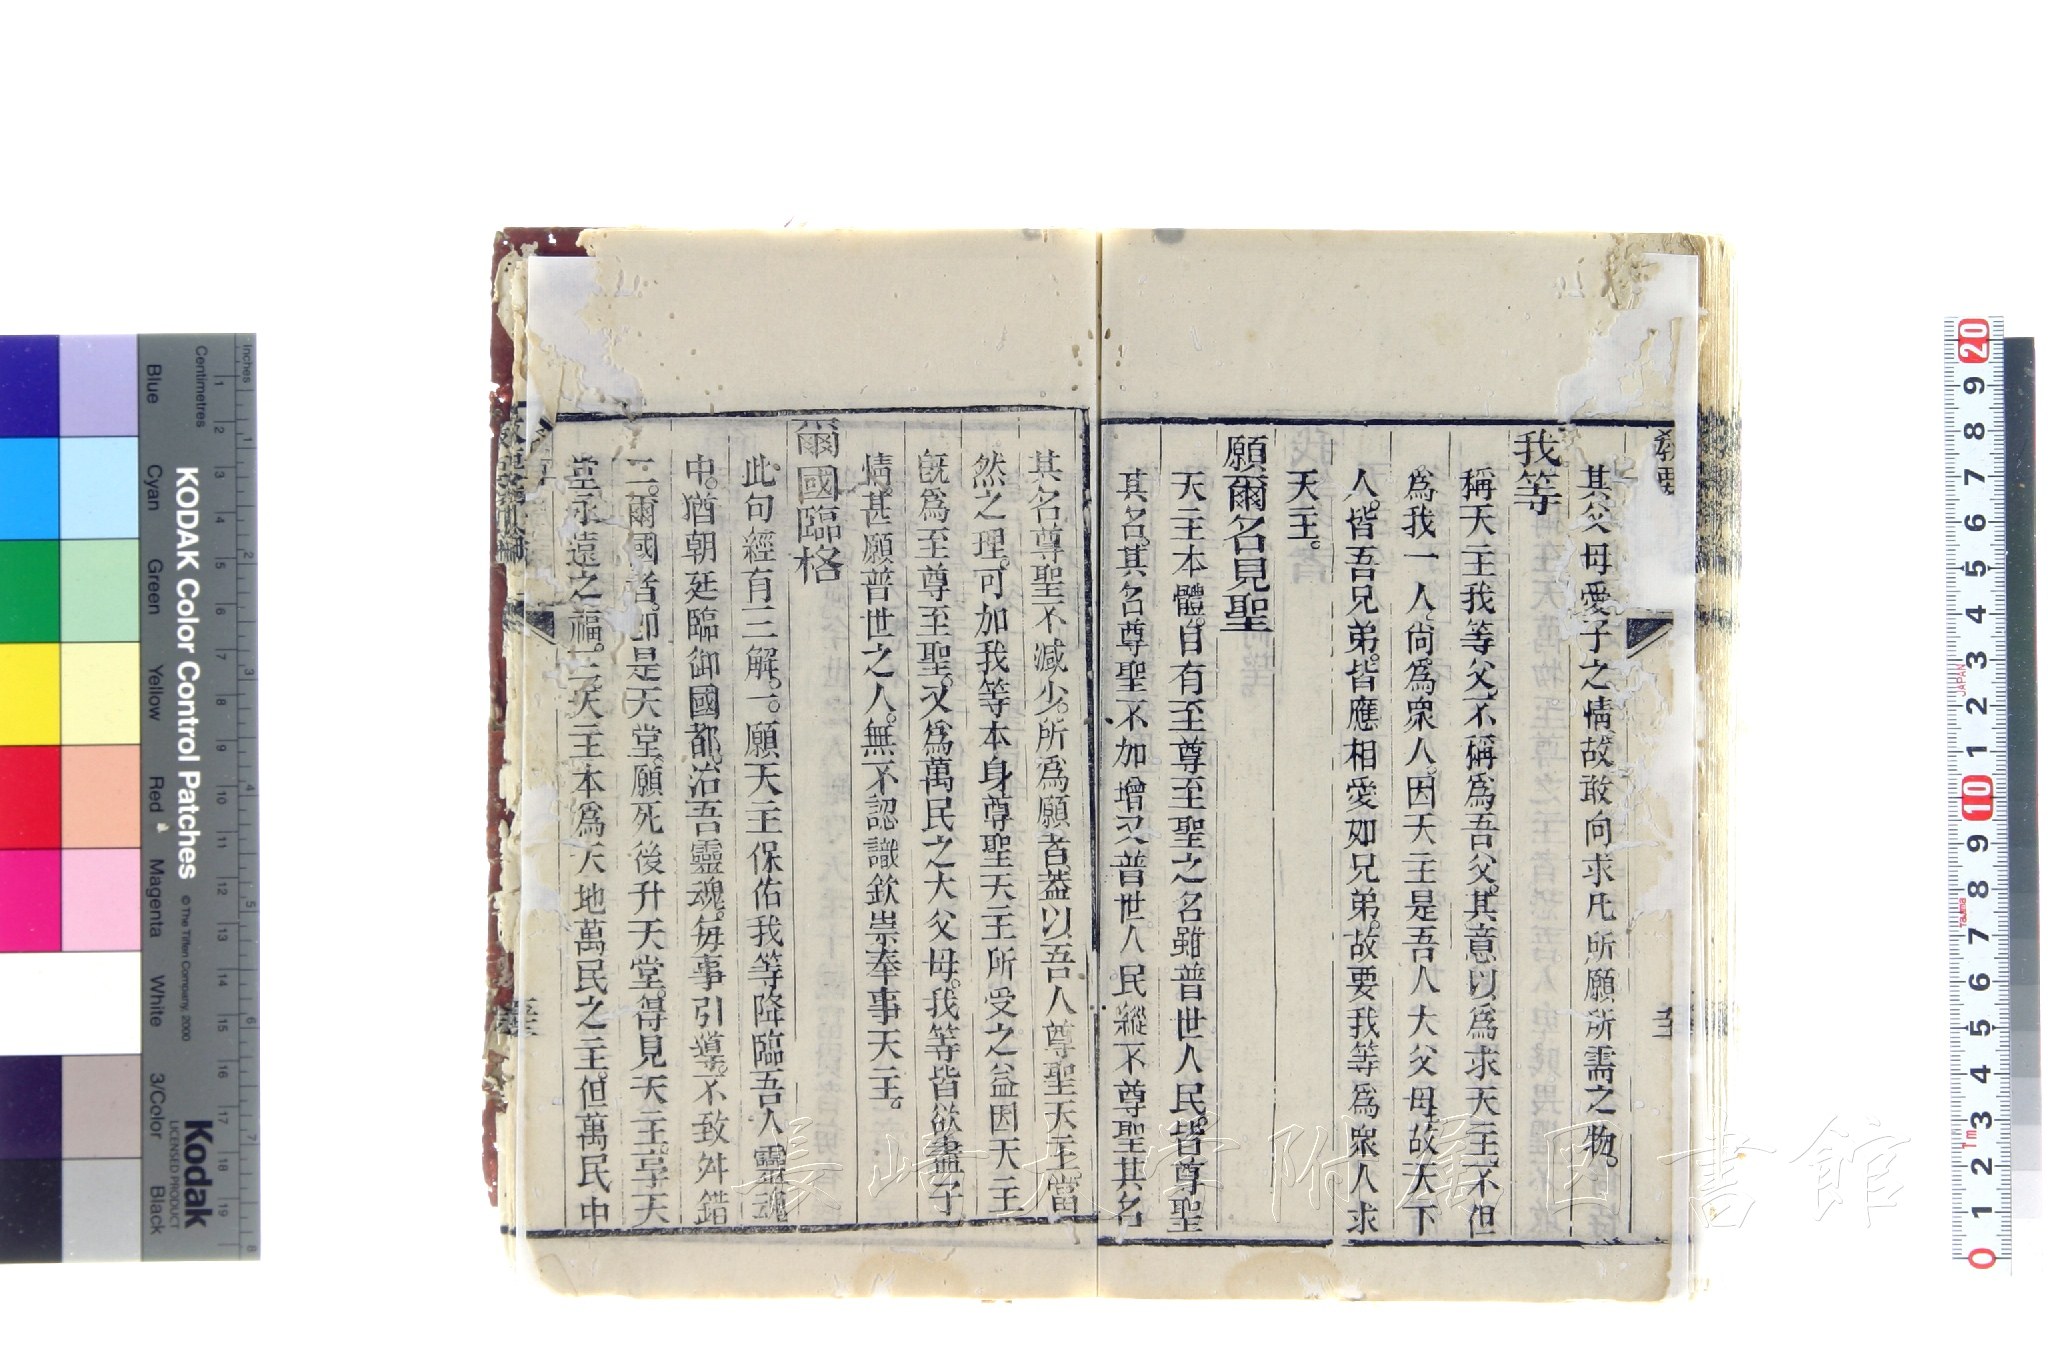 其父母愛子之情故敢向求凡所願所需之物。
我等
稱天主我等父。不稱爲吾父。其意以爲求天主。不但
爲我一人。尚爲衆人。因天主是吾人大父母。故天下
人。皆吾兄弟。皆應相愛如兄弟。故要我等爲衆人求
天主。
願爾名見聖
天主本體。自有至尊至聖之名。雖普世人民。皆尊聖
其名。其名尊聖不加增。又普世人民。縱不尊聖其名
其名尊聖不減少。所爲願者。葢以吾人尊聖天主。當
然之理。可加我等本身尊聖天主所受之益。因天主
旣爲至尊至聖。又爲萬民之大父母。我等皆欲盡子
情。甚願普世之人。無不認識欽崇奉事天主。
爾國臨格
此句經有三解。一。願天主保佑我等降臨吾人靈魂
中。猶朝廷臨御國都。治吾靈魂。每事引導。不致舛錯
二。爾國者。卽是天堂。願死後升天堂。得見天主。享天
堂永遠之福。三。天主本爲天地萬民之主。但萬民中
KODAK Color Control Patches
© The Tiffen Company, 2000
Kodak
LICENSED PRODUCT
Inches
Centimetres
Blue
Cyan
Green
Yellow
Red
Magenta
White
3/Color
Black
長崎大学附属図書館
JAPAN
Tajima
Tm